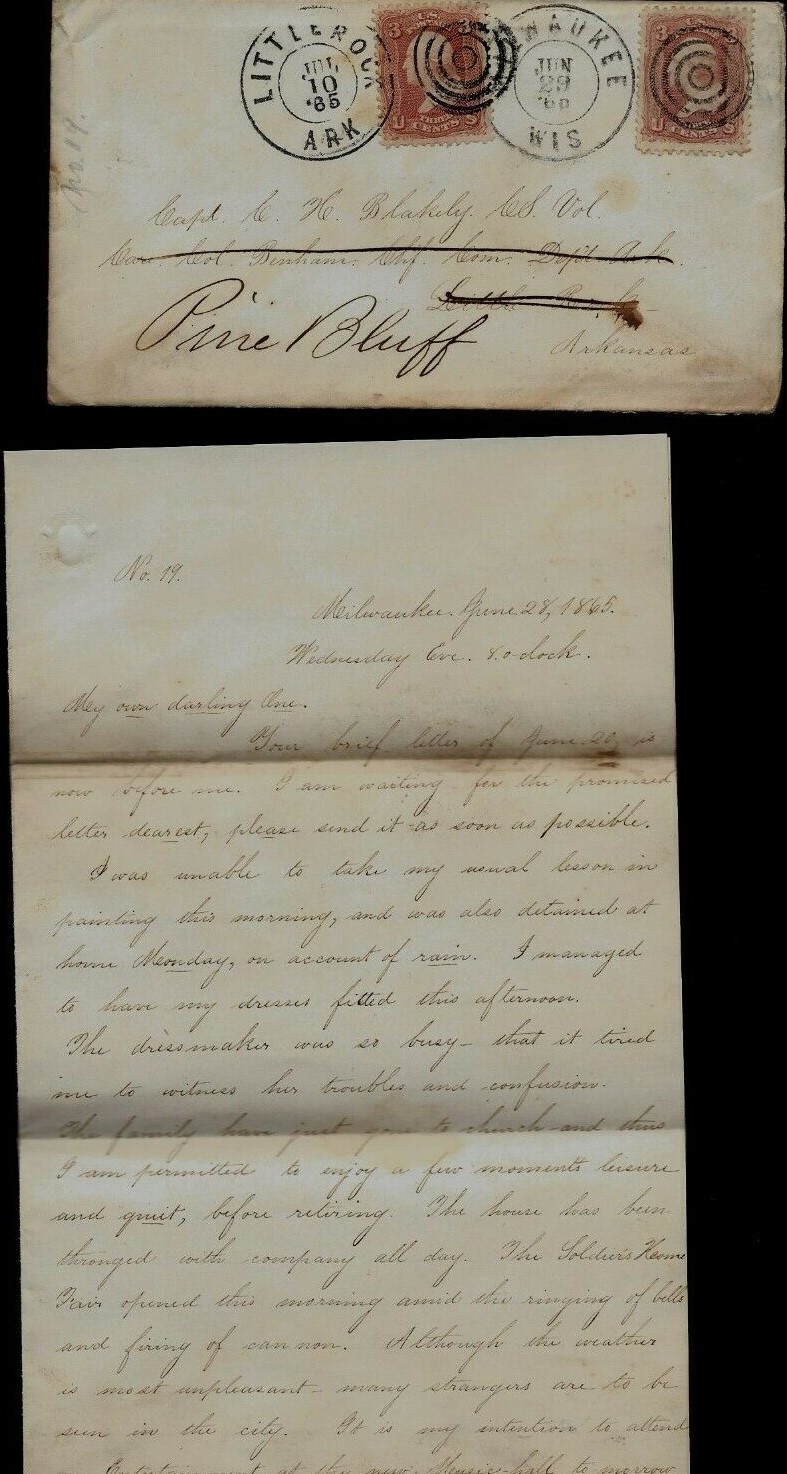 LITTLE ROCK
JUL
10
'65
ARK
WAUKEE
JUN
29
'65
WIS
3 U.S. 3
THREE
U CENTS S
3 U.S.
U CENTS S
No 19.
Capt. C. H. Blakely. CS. Vol.
Care Col. Benham. Chf. Com. Dept. Ark.
Little Rock
Pine Bluff
Arkansas
No. 19.
Milwaukee. June 28, 1865.
Wednesday Eve. 8. o clock.
My own darling One.
Your brief letter of June 20, is
now before me. I am waiting for the promised
letter dearest, please send it as soon as possible.
I was unable to take my usual lesson in
painting this morning, and was also detained at
home Monday, on account of rain. I managed
to have my dresses fitted this afternoon.
The dressmaker was so busy - that it tired
me to witness her troubles and confusion.
The family have just gone to church - and thus
I am permitted to enjoy a few moments leisure
and quiet, before retiring. The house has been
thronged with company all day. The Soldiers Home
Fair opened this morning amid the ringing of bells
and firing of cannon. Although the weather
is most unpleasant - many strangers are to be
seen in the city. It is my intention to attend
Entertainment at the new Music-hall to morrow